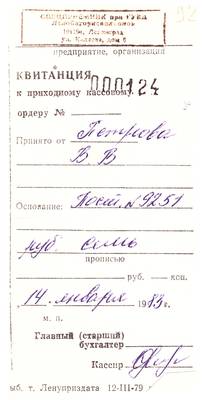 СПЕЦПРИЕМНИК при ГУВД
Леноблгорисполкома
Ленинград
ул. Каляева, дом 6
предприятие, организация
КВИТАНЦИЯ 000124
к приходному кассовому
ордеру №
Принято от Петрова
В В
Основание: Пост. №9251
руб семь
прописью
руб. коп.
14 января 1983г.
м. п.
Главный (старший)
бухгалтер
Кассир
т. Ленуприздата 12-III-79